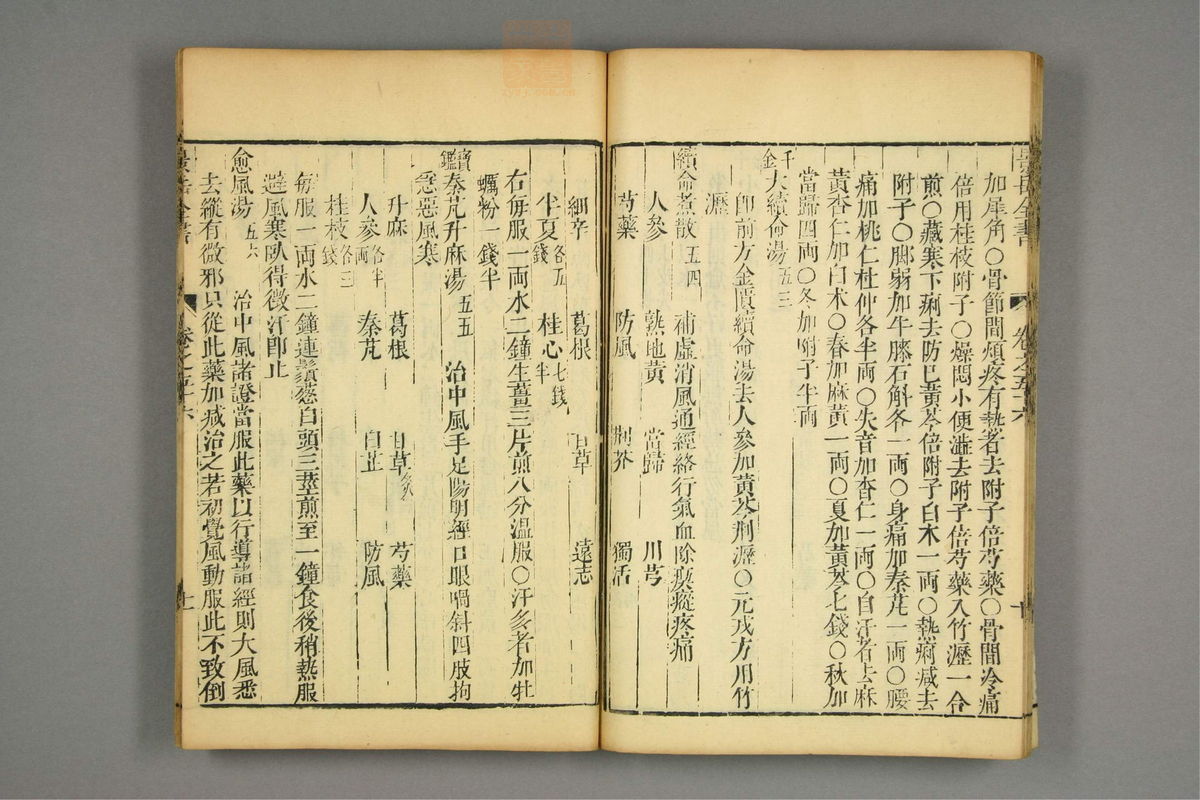 加犀角○骨節間煩疼有熱者去附子倍芍藥○骨間冷痛
倍用桂枝附子○燥悶小便澁去附子倍芍藥入竹瀝一合
煎○藏寒下痢去防巳黃芩倍附子白朮一兩○熱痢減去
附子○脚弱加牛膝石斛各一兩○身痛加秦艽一兩○腰
痛加桃仁杜仲各半兩○失音加杏仁一兩○自汗者去麻
黃杏仁加白朮○春加麻黃一兩○夏加黃芩七錢○秋加
當歸四兩○冬加附子半兩
千金大續命湯 五三
即前方金匱續命湯去人參加黃芩荊瀝○元戎方用竹
瀝
續命煮散 五四 補虛消風通經絡行氣血除瘈瘲疼痛
人參 熟地黃 當歸 川芎
芍藥 防風 荆芥 獨活
細辛 葛根 甘草 遠志
半夏各五錢 桂心七錢半
右每服一兩水二鐘生薑三片煎八分温服○汗多者加牡
蠣粉一錢半
寶鑑秦艽升麻湯 五五 治中風手足陽明經口眼喎斜四肢拘
急惡風寒
升麻 葛根 甘草各炙 芍藥
人參各半兩 秦艽 白芷 防風
桂枝各三錢
每服一兩水二鐘連鬚葱白頭三莖煎至一鐘食後稍熱服
避風寒臥得微汗卽止
愈風湯 五六 治中風諸證當服此藥以行導諸經則大風悉
去縱有微邪只從此藥加减治之若初覺風動服此不致倒
景岳全書 卷之五十六 十一